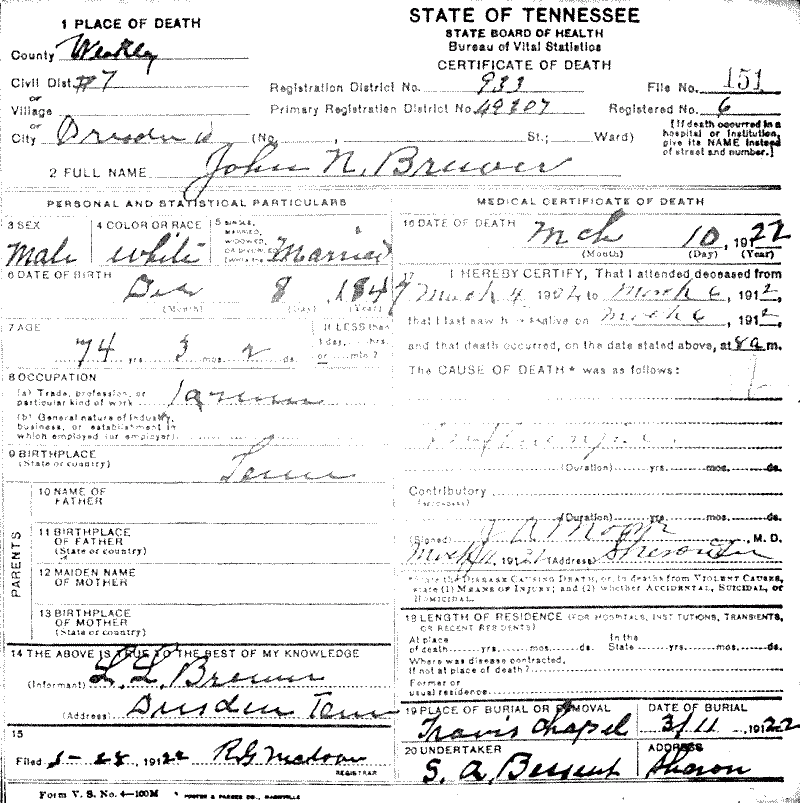 STATE OF TENNESSEE
STATE BOARD OF HEALTH
Bureau of Vital Statistics
CERTIFICATE OF DEATH
1 PLACE OF DEATH
County Weakley
Civil Dist. #7
or
Village
or
City Dresden
(No. , St.; Ward)
Registration District No. 933 File No. 151
Primary Registration District No. 49307 Registered No. 6
[If death occurred in a
hospital or institution,
give its NAME instead
of street and number.]
2 FULL NAME John N. Brewer
PERSONAL AND STATISTICAL PARTICULARS
3 SEX
Male
4 COLOR OR RACE
white
5 SINGLE,
MARRIED,
WIDOWED,
OR DIVORCED
(Write the word)
Married
6 DATE OF BIRTH
Dec 8, 1847
(Month) (Day) (Year)
7 AGE
74 yrs. 3 mos. 2 ds.
If LESS than
1 day, hrs.
or min.?
8 OCCUPATION
(a) Trade, profession, or
particular kind of work farmer
(b) General nature of Industry,
business, or establishment in
which employed (or employer)
9 BIRTHPLACE
(State or country)
Tenn
PARENTS
10 NAME OF
FATHER
11 BIRTHPLACE
OF FATHER
(State or country)
12 MAIDEN NAME
OF MOTHER
13 BIRTHPLACE
OF MOTHER
(State or country)
14 THE ABOVE IS TRUE TO THE BEST OF MY KNOWLEDGE
(Informant) L. L. Brewer
(Address) Dresden Tenn
15
Filed 1922
REGISTRAR
MEDICAL CERTIFICATE OF DEATH
16 DATE OF DEATH
Mch 10, 1922
(Month) (Day) (Year)
17 I HEREBY CERTIFY, That I attended deceased from
March 4 to March 6, 191
that I last saw h alive on 6, 191
and that death occurred, on the date stated above, at 8 a m.
The CAUSE OF DEATH * was as follows:
Influenza
(Duration) yrs. mos. ds.
Contributory
(SECONDARY)
(Duration) yrs. mos. ds.
(Signed) , M. D.
(Address) Sharon Tn
*State the DISEASE CAUSING DEATH, or, in deaths from VIOLENT CAUSES,
state (1) MEANS OF INJURY; and (2) whether ACCIDENTAL, SUICIDAL, or
HOMICIDAL.
18 LENGTH OF RESIDENCE (FOR HOSPITALS, INSTITUTIONS, TRANSIENTS,
OR RECENT RESIDENTS)
At place
of death yrs. mos. ds.
In the
State yrs. mos. ds.
Where was disease contracted,
If not at place of death?
Former or
usual residence
19 PLACE OF BURIAL OR REMOVAL
Travis Chapel
DATE OF BURIAL
3/11, 1922
20 UNDERTAKER
S. A.
ADDRESS
Sharon
Form V. S. No. 4—100M